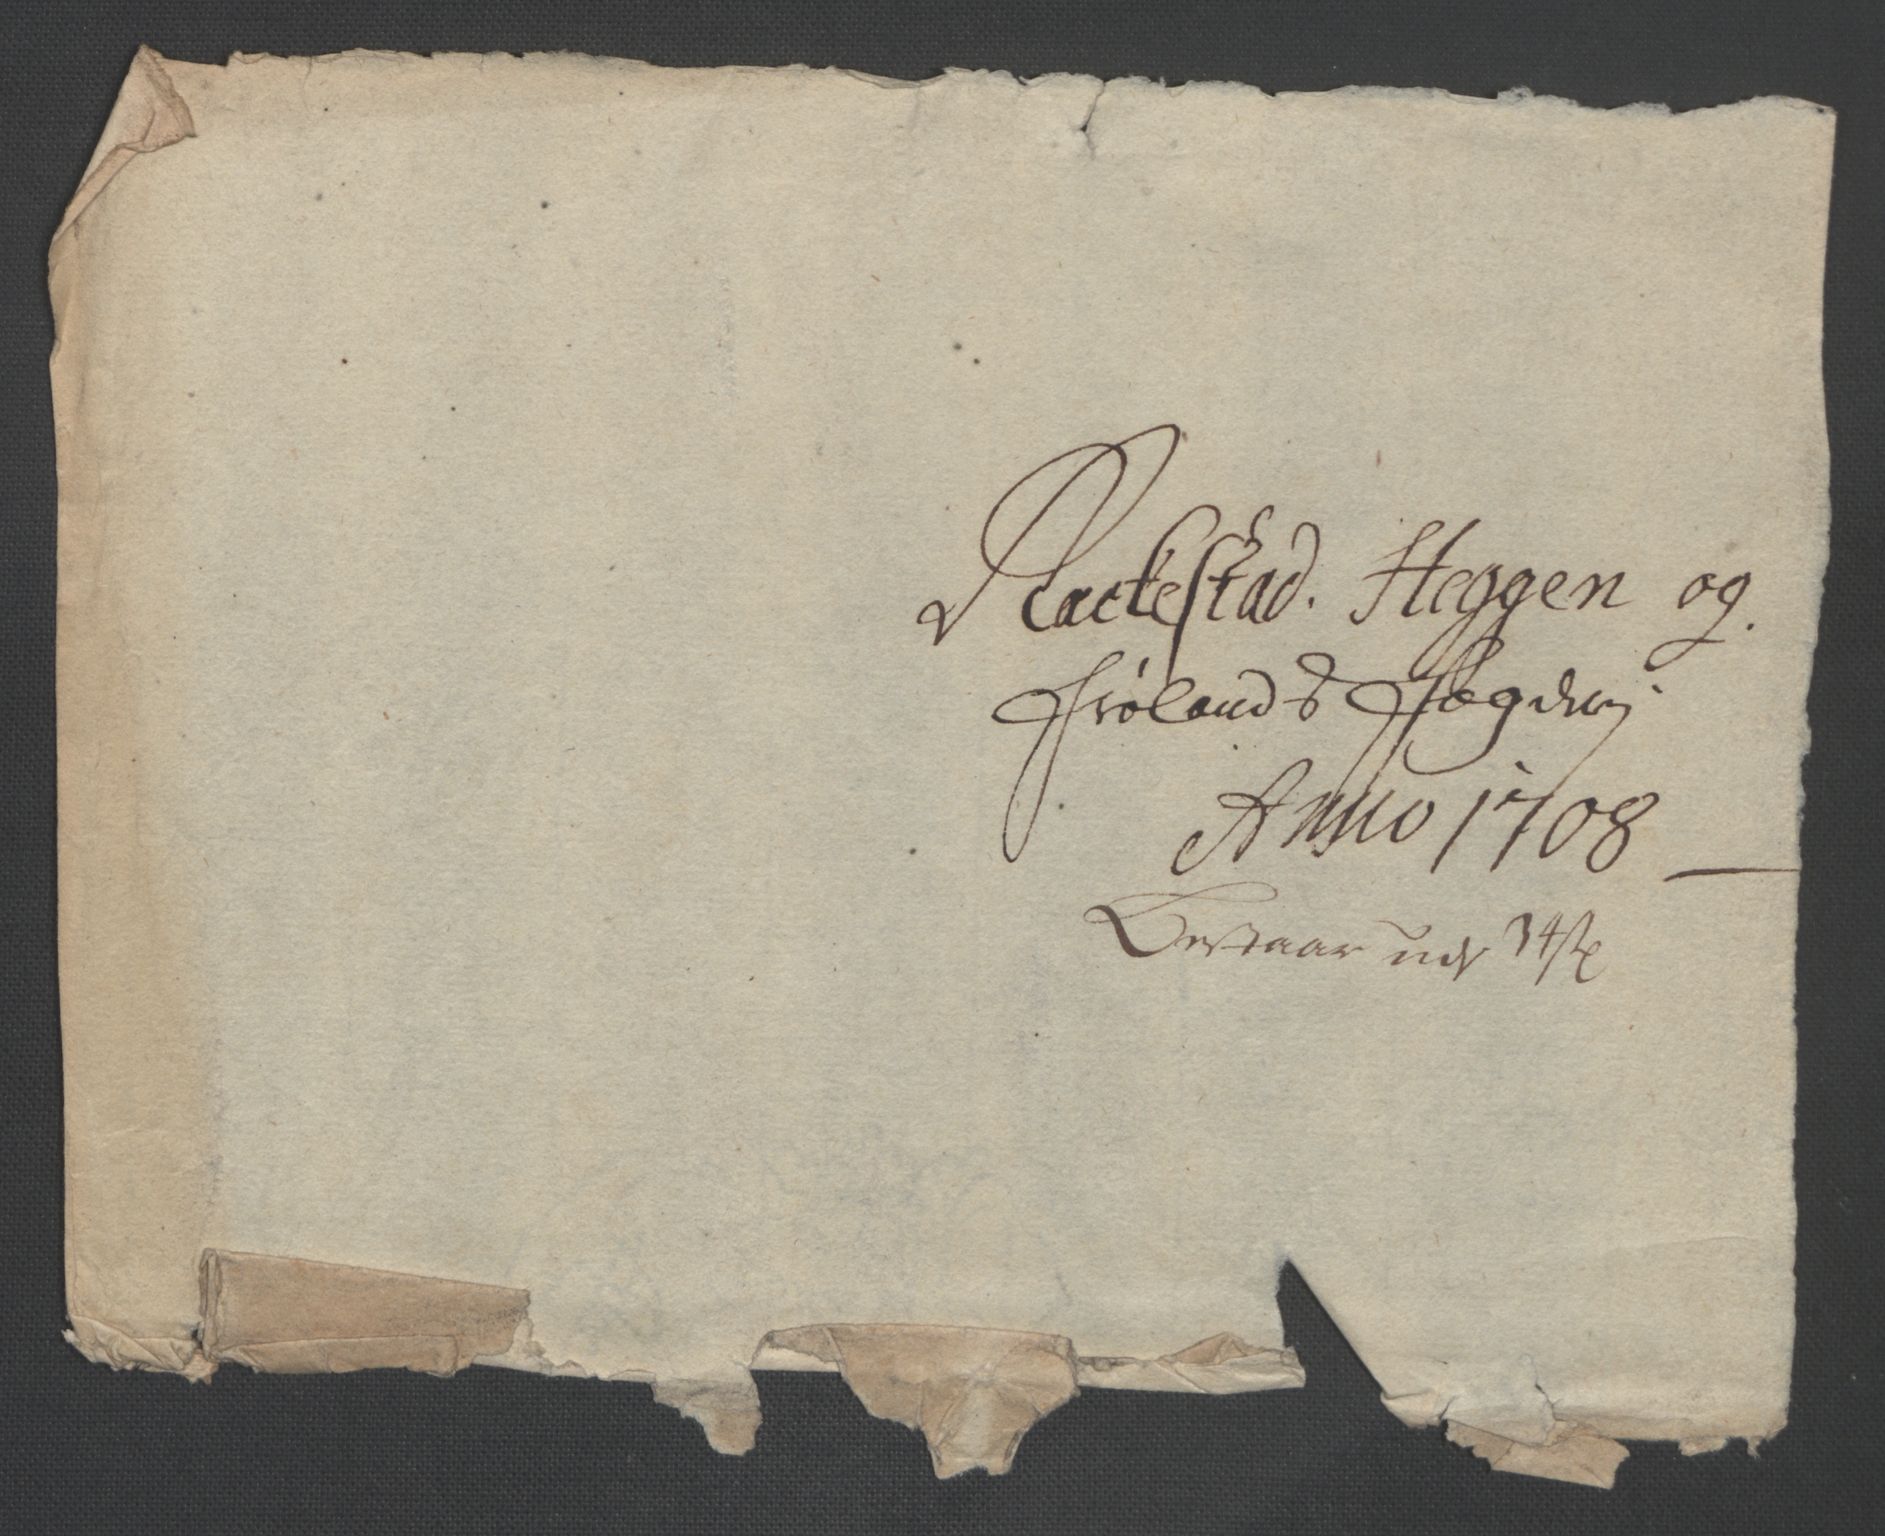 Rackestad. Heggen og
Frølands Fogderj
Anno 1708
Bestaar udj 34 st